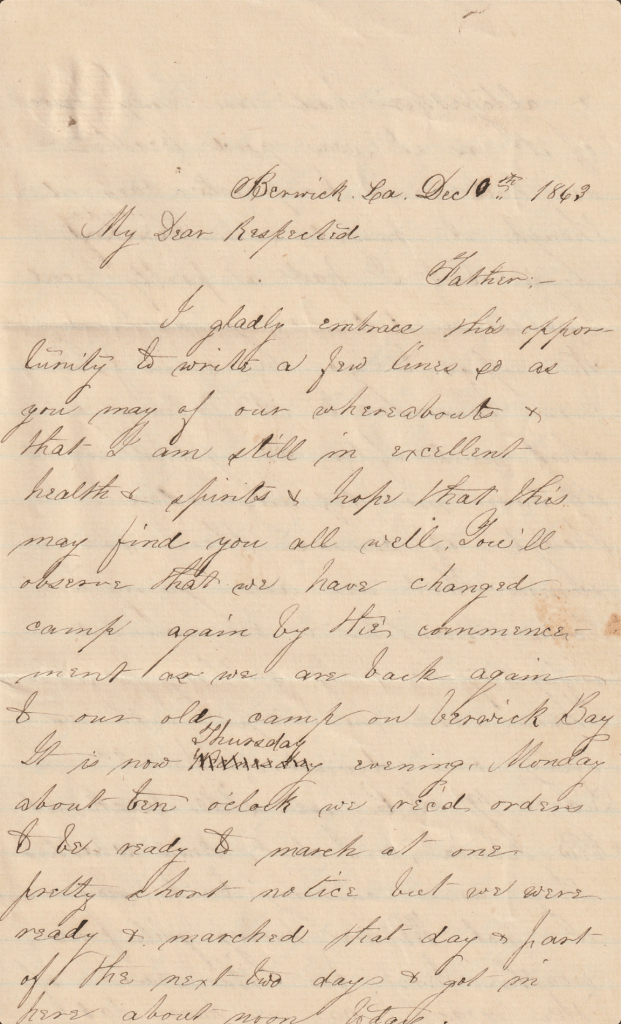 Berwick. La. Dec 10th 1863
My Dear Respected
Father;-
I gladly embrace this oppor-
tunity to write a few lines so as
you may of our whereabouts &
that I am still in excellent
health & spirits & hope that this
may find you all well. You'll
observe that we have changed
camp again by the commence-
ment as we are back again
to our old camp on Berwick Bay
It is now Thursday evening. Monday
about ten o'clock we rec'd orders
to be ready to march at one
pretty short notice but we were
ready & marched that day & part
of the next two days & got in
here about noon today.